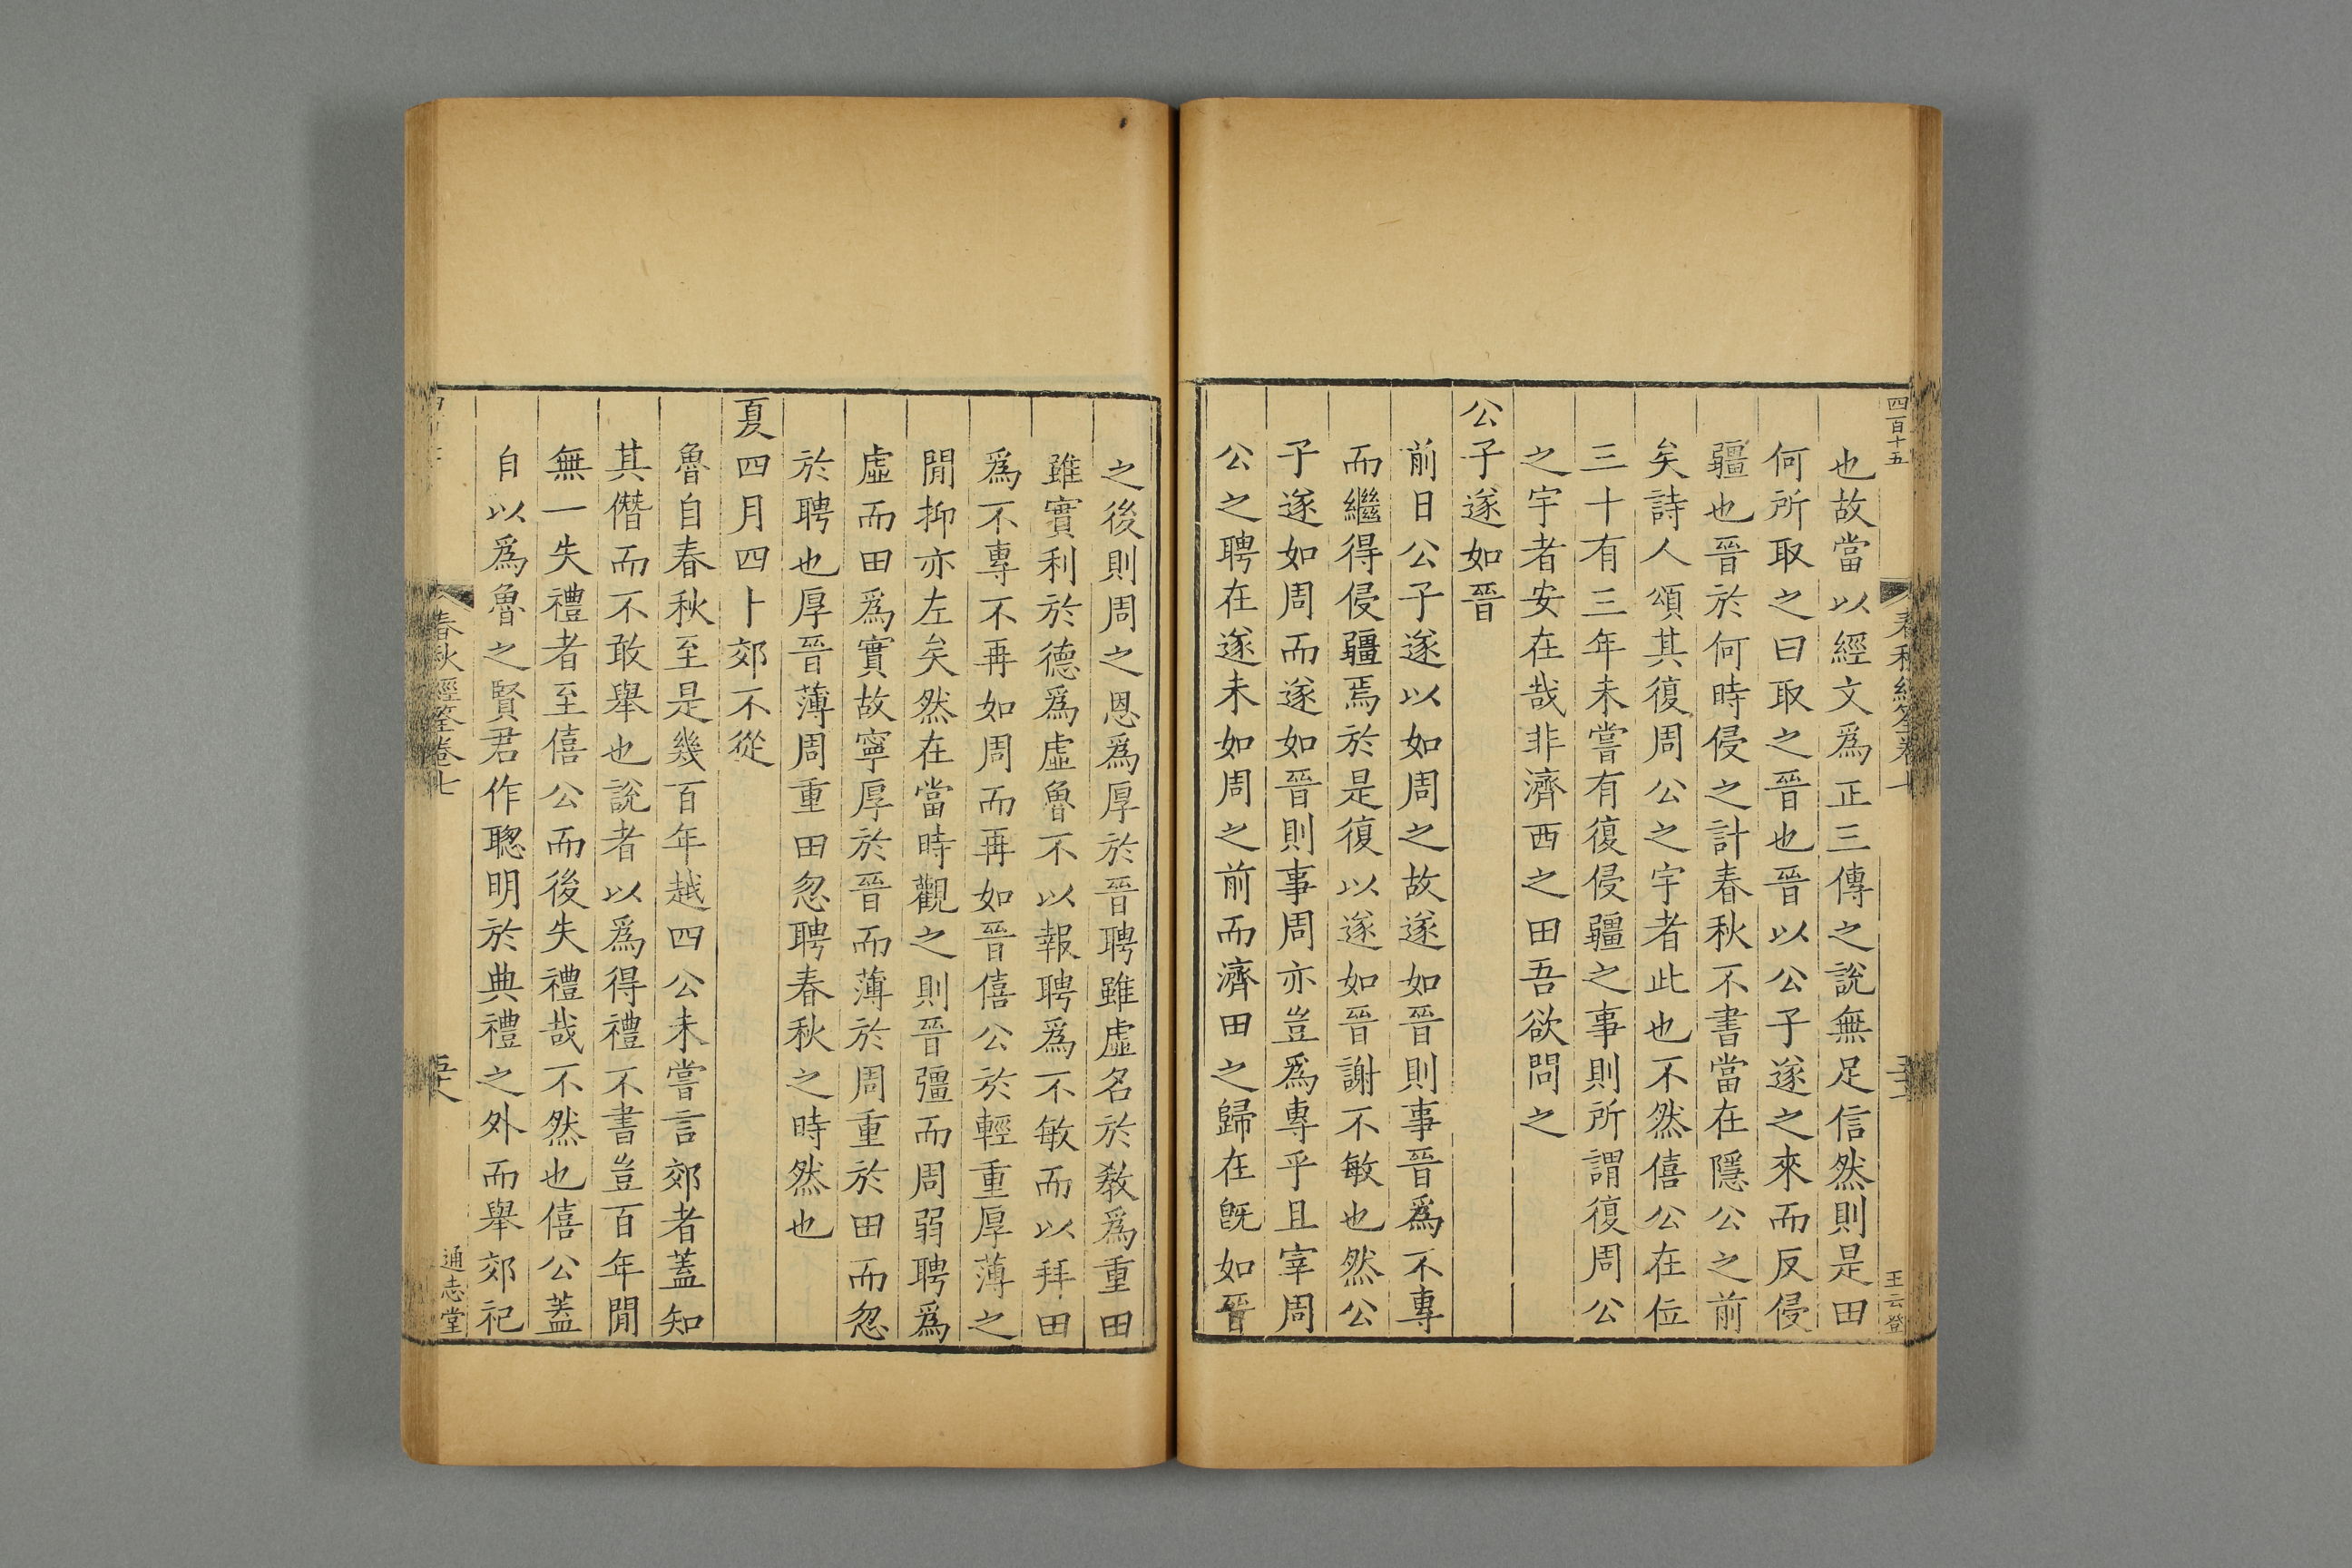 四百十五
王云登
也故當以經文爲正三傳之說無足信然則是田
何所取之曰取之晉也晉以公子遂之來而反侵
疆也晉於何時侵之計春秋不書當在隱公之前
矣詩人頌其復周公之宇者此也不然僖公在位
三十有三年未嘗有復侵疆之事則所謂復周公
之宇者安在哉非濟西之田吾欲問之
公子遂如晉
前日公子遂以如周之故遂如晉則事晉爲不專
而繼得侵疆焉於是復以遂如晉謝不敏也然公
子遂如周而遂如晉則事周亦豈爲專乎且宰周
公之聘在遂未如周之前而濟田之歸在旣如晉
之後則周之恩爲厚於晉聘雖虛名於敎爲重田
雖實利於德爲虛魯不以報聘爲不敏而以拜田
爲不專不再如周而再如晉僖公於輕重厚薄之
閒抑亦左矣然在當時觀之則晉彊而周弱聘爲
虛而田爲實故寧厚於晉而薄於周重於田而忽
於聘也厚晉薄周重田忽聘春秋之時然也
夏四月四卜郊不從
魯自春秋至是幾百年越四公未嘗言郊者蓋知
其僭而不敢舉也說者以爲得禮不書豈百年閒
無一失禮者至僖公而後失禮哉不然也僖公蓋
自以爲魯之賢君作聰明於典禮之外而舉郊祀
春秋經筌卷七
通志堂